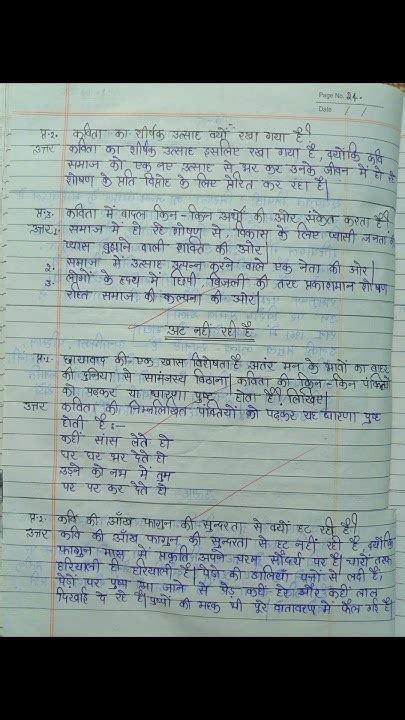 Page No. 24.
Date / /
प्र.2. कविता का शीर्षक उत्साह क्यों रखा गया है?
उत्तर कविता का शीर्षक उत्साह इसलिए रखा गया है, क्योंकि कवि
समाज को एक नए उत्साह से भर कर उनके जीवन में हो रहे
शोषण के प्रति विद्रोह के लिए प्रेरित कर रहा है|
प्र.3. कविता में बादल किन-किन अर्थों की ओर संकेत करता है?
उत्तर 1. समाज में हो रहे शोषण से, विकास के लिए प्यासी जनता की
प्यास बुझाने वाली शक्ति की ओर|
2. समाज में उत्साह उत्पन्न करने वाले एक नेता की ओर|
3. लोगों के हृदय में छिपी बिजली की तरह प्रकाशमान शोषण
रहित समाज की कल्पना की ओर|
अट नहीं रही है
प्र.1. छायावाद की एक खास विशेषता है अतंर मन के भावों का बाहर
की दुनिया से सामंजस्य बिठाना| कविता की किन-किन पंक्तियों
को पढ़कर या धारणा पुष्ट होती है? लिखिए|
उत्तर कविता की निम्नलिखित पंक्तियों को पढ़कर यह धारणा पुष्ट
होती है :-
कहीं सांस लेते हो
घर घर भर देते हो
उड़ने को नभ में तुम
पर पर कर देते हो
प्र.2. कवि की आँख फागुन की सुन्दरता से क्यों हट रही है|
उत्तर कवि की आँख फागुन की सुन्दरता से हट नहीं रही है, क्योंकि
फागुन मास में प्रकृति अपने चरम सौंदर्य पर है| चारों तरफ
हरियाली ही हरियाली है| पेड़ों की डालियाँ पत्तों से लदी हैं,
पेड़ों पर पुष्प आ जाने से पेड़ कहीं हरे और कहीं लाल
दिखाई दे रहे हैं| पुष्पों की महक भी पूरे वातावरण में फैल गई है|